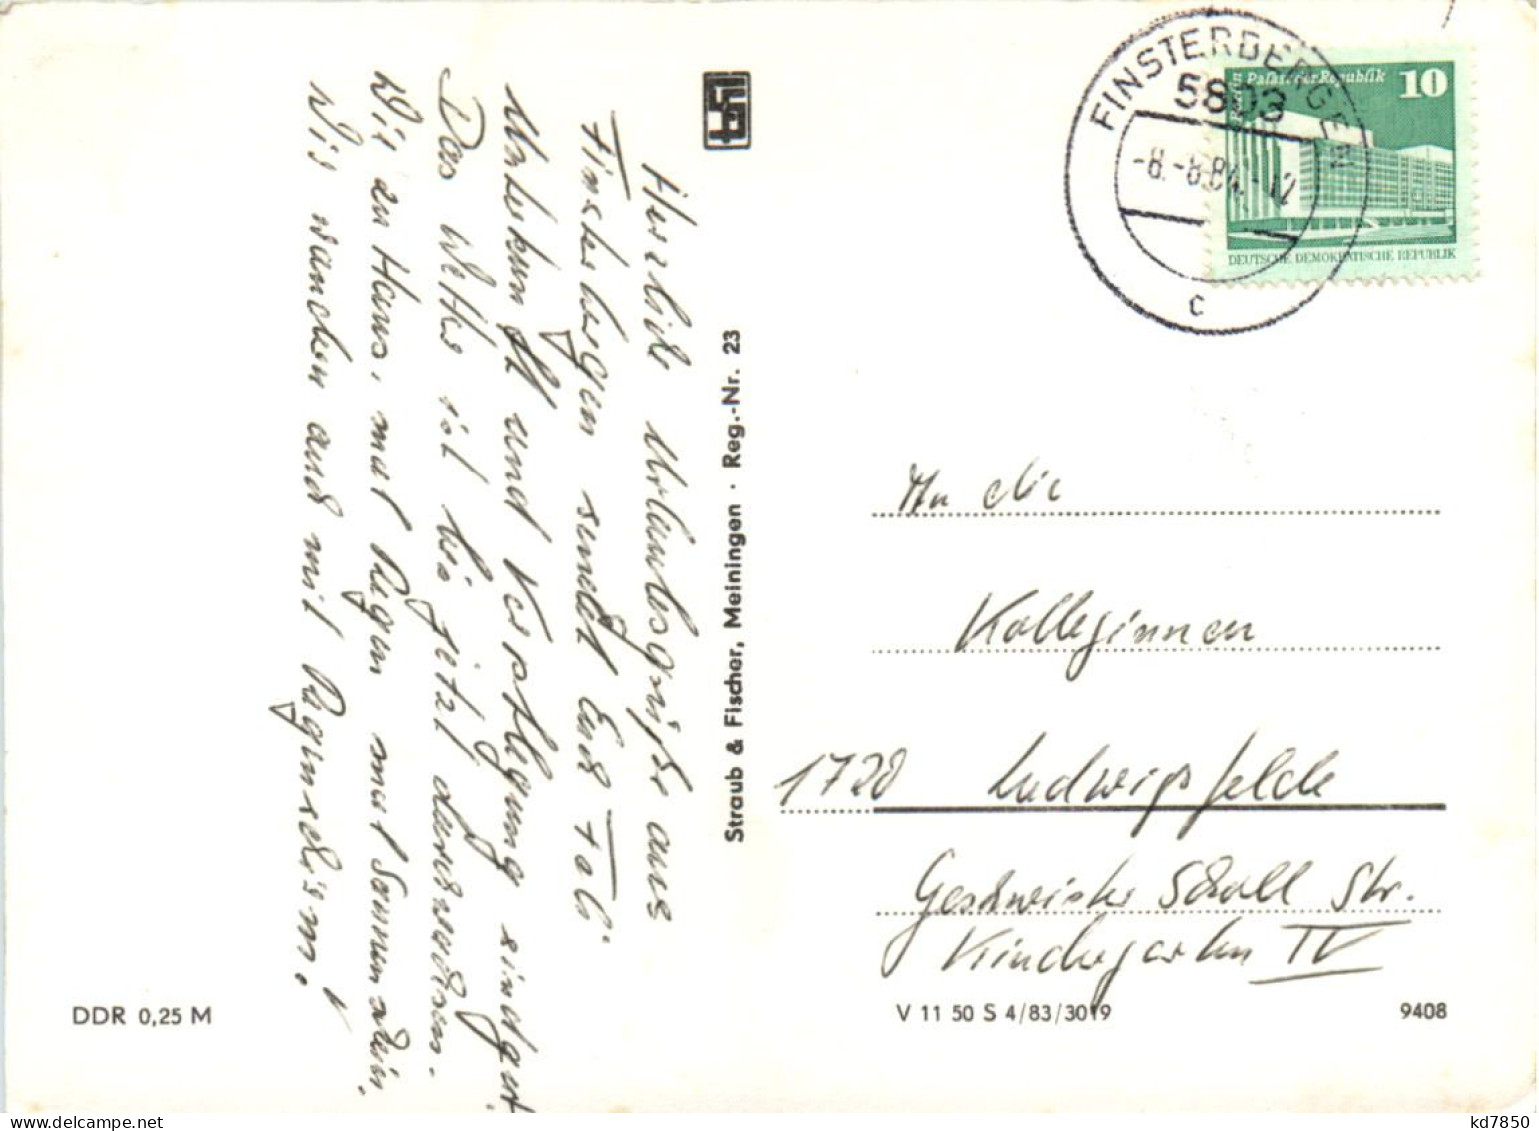 Herzliche Urlaubsgrüße aus
Finsterbergen sendet Euch
Unterkunft und Verpflegung sind gut.
Das Wetter ist bis jetzt durchwachsen.
Wie zu Haus, mal Regen mal Sonnenschein.
Wir wandern auch mit Regenschirm!
Straub & Fischer, Meiningen · Reg.-Nr. 23
FINSTERBERGEN
5803
-8.-8.84.-12
c
Palast der Republik
10
DEUTSCHE DEMOKRATISCHE REPUBLIK
An die
Kolleginnen
1720 Ludwigsfelde
Geschwister Scholl Str.
Kindergarten IV
DDR 0,25 M
V 11 50 S 4/83/3019
9408
kd7850